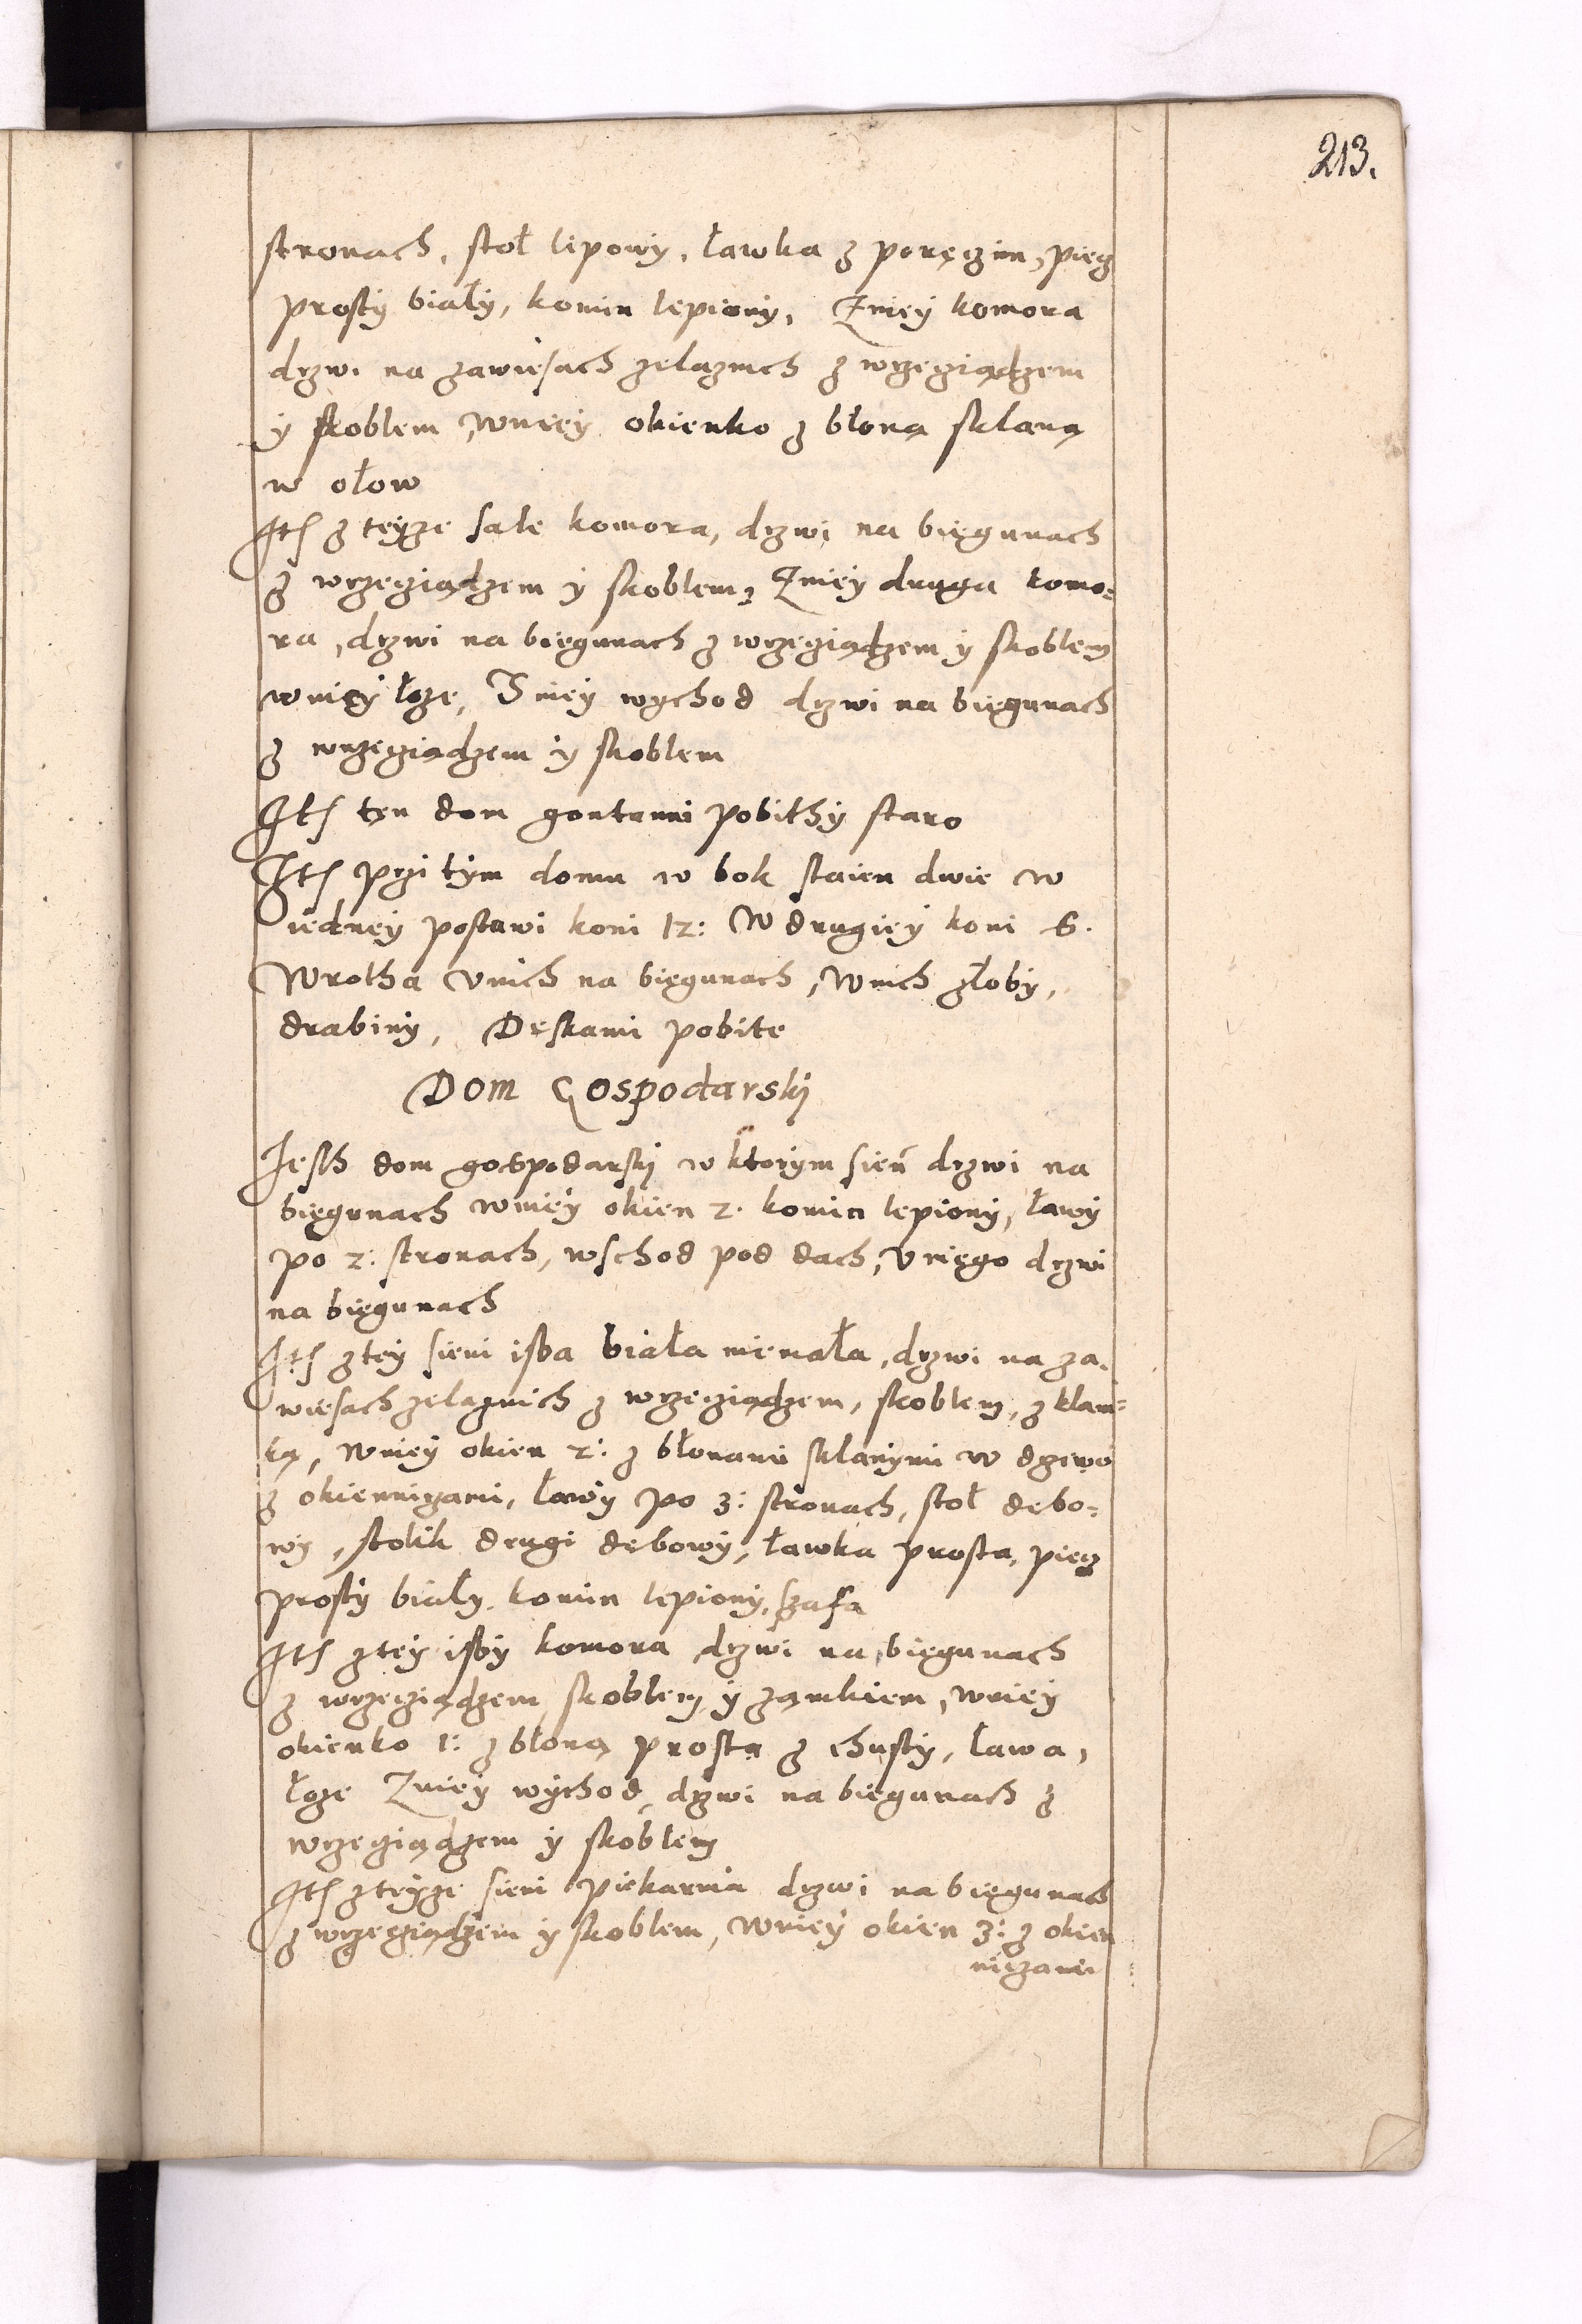 213.
stronach, stoł lipowy, ławka z poręczim, piecz
prosty biały, komin lepiony, Zniey komora
drzwi na zawiesach zelaznich z wrzeciądzem
y skoblem, wniey okienko z błoną sklaną
w ołow
Ite z teyze sale komora, drzwi na biegunach
z wrzeciądzem y skoblem, Zniey druga komo=
ra, drzwi na biegunach z wrzeciądzem y skoblem
wniey łoze, Zniey wychod drzwi na biegunach
z wrzeciądzem y skoblem
Ite ten dom gontami pobithy staro
Ite przi tym domu w bok staien dwie w
iedney postawi koni 12: W drugiey koni 6.
Wrotha v nich na biegunach, wnich złoby,
drabiny, Deskami pobite
Dom Gospodarski
Iesth dom gospodarski w ktorym sień drzwi na
biegunach wniey okien 2. komin lepiony, ławy
po 2: stronach, wschod pod dach, v niego drzwi
na biegunach
Ite z tey sieni isba biała niemała, drzwi na za,
wiesach zelaznich z wrzeciądzem, skoblem, z klam=
ką, wniey okien 2: z błonami sklanymi w drzewo
z okiennicami, ławy po 3: stronach, stoł debo=
wy, stolik drugi debowy, ławka prosta, piecz
prosty biały, komin lepiony, szafa
Ite z tey isby komora drzwi na biegunach
z wrzeciądzem, skoblem y zamkiem, wniey
okienko 1: z błoną prosta z chusty, ława,
łoze Zniey wychod, drzwi na biegunach z
wrzeciądzem y skoblem
Ite z teyze sieni piekarnia drzwi na biegunach
z wrzeciądzem y skoblem, wniey okien 3: z okien
niczami